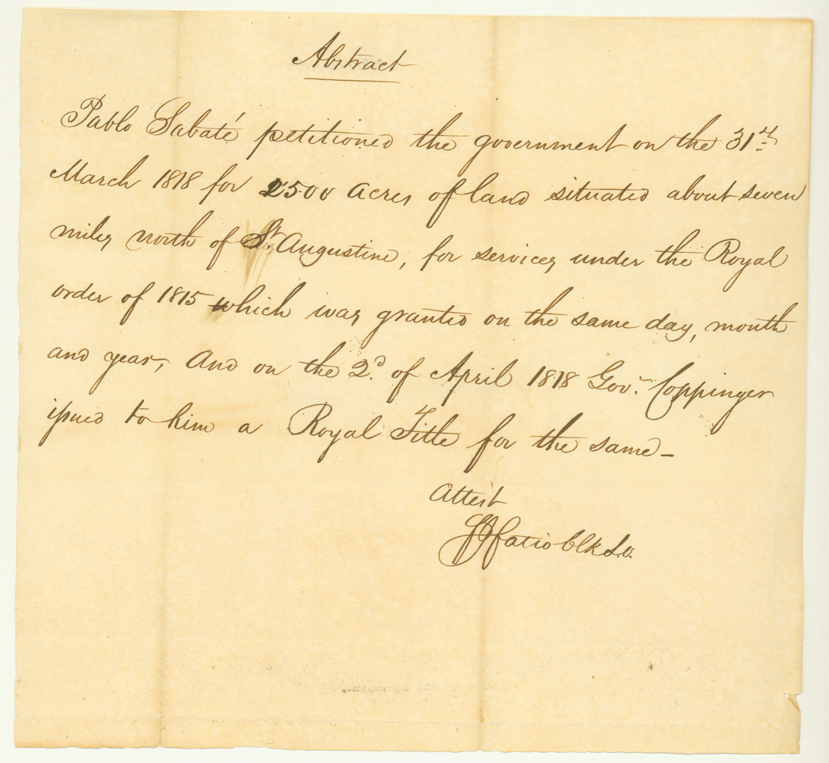 Abstract
Pablo Sabaté petitioned the government on the 31st
March 1818 for 2500 acres of land situated about seven
miles north of St. Augustine, for services under the Royal
order of 1815 which was granted on the same day, month
and year, And on the 2d. of April 1818 Gov. Coppinger
issued to him a Royal Title for the same—
Attest
F J Fatio Clk S.O.